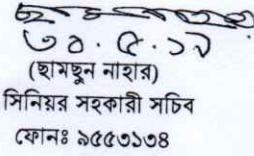 ৩০.৫.১৯
(ছামছুন নাহার)
সিনিয়র সহকারী সচিব
ফোনঃ ৯৫৫৩১৩৪